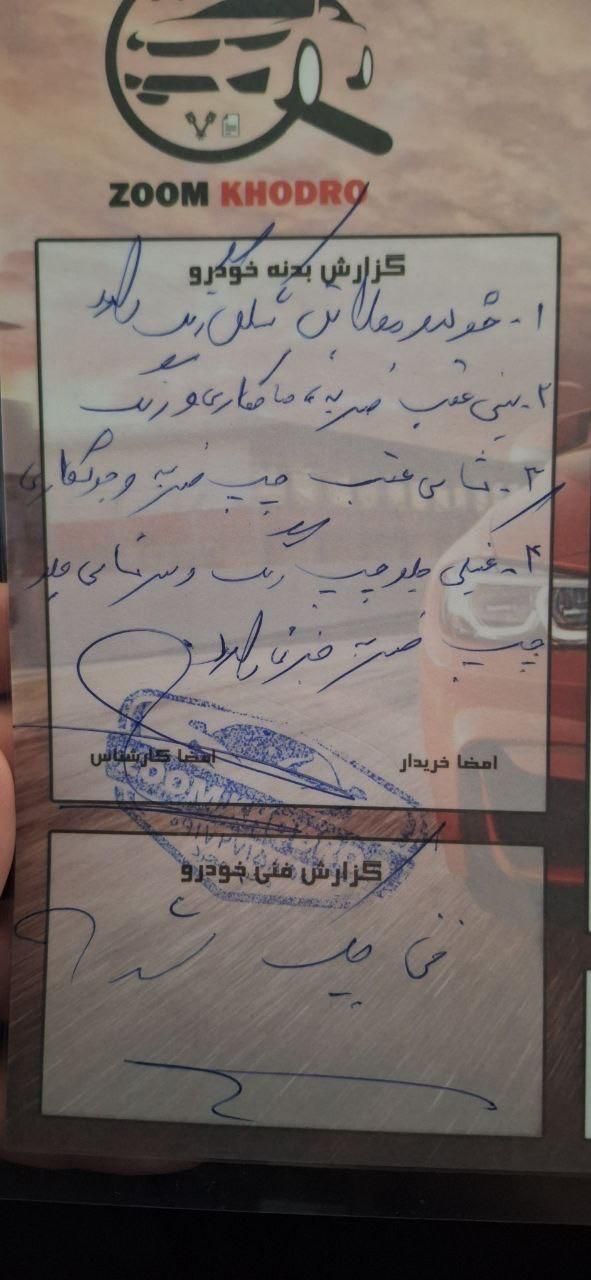 ZOOM KHODRO
گزارش بدنه خودرو
۱- خودرو رنگ دارد
۲- سینی عقب ضربه، صافکاری و رنگ
۳- شاسی عقب چپ ضربه و جوشکاری
۴- گلگیر جلو چپ رنگ و سرشاسی جلو
چپ ضربه جزئی دارد
امضا خریدار
امضا کارشناس
گزارش فنی خودرو
فنی چک شد